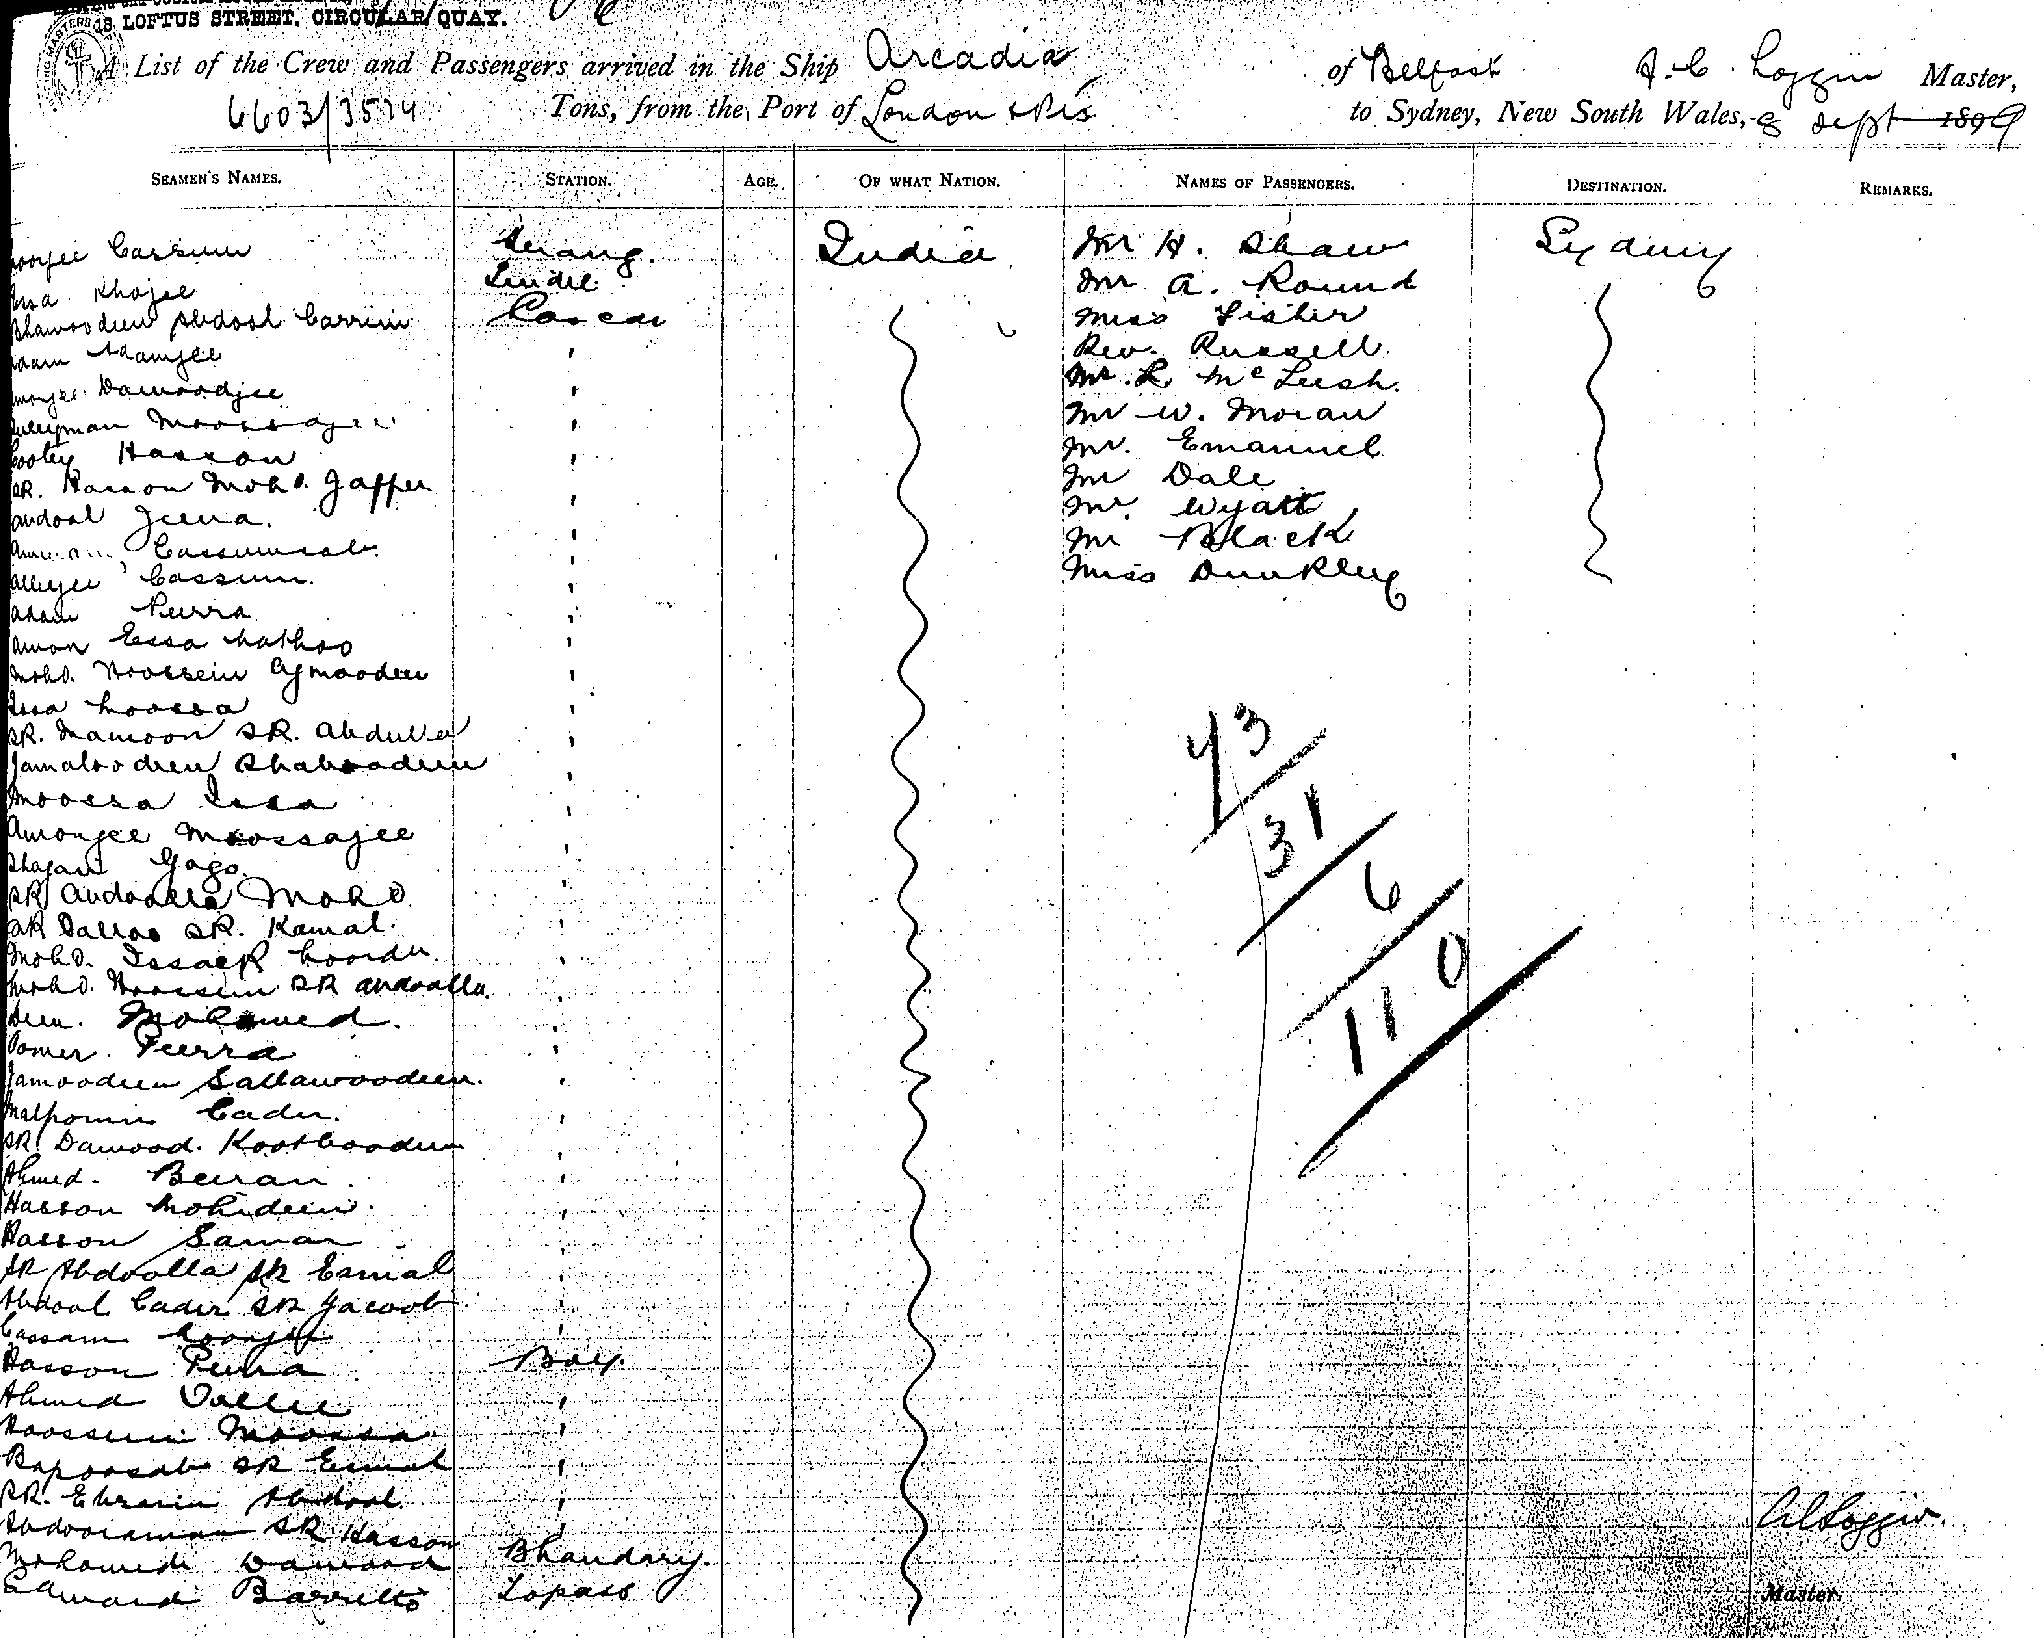 18, LOFTUS STREET, CIRCULAR QUAY.
A List of the Crew and Passengers arrived in the Ship Arcadia of Belfast A. C. Loggin Master,
6603/3574 Tons, from the Port of London & Pts to Sydney, New South Wales, 8 Sept 1899
SEAMEN'S NAMES. STATION. AGE. OF WHAT NATION. NAMES OF PASSENGERS. DESTINATION. REMARKS.
Cassum Serang. India Mr H. Shaw Sydney
Khojee Tindle Mr A. Round
Abdool Carrim Cascar Miss Fisher
Adamjee Rev. Russell.
Dawoodjee Mr. L McLeish.
Moossajee Mr W. Moran
Hasson Mr. Emanuel
SR. Hasson Mohd. Jaffer Mr Dale
Jeena. Mr. Wyatt
Cassumsab. Mr Black
Cassum. Miss Dunkley
Adam Peerra
Amon Essa
Mohd. Hoossein Ajmoodeen
Issa Moossa
SR. Mamoon SR. Abdulla
Jamaloodeen Shaboodeen
Moossa Issa
Amonjee Moossajee
Gogo.
SR Abdoolla Mohd
SR SR. Kamal.
Mohd. Issack
Mohd. Hoossein SR Abdoolla.
Deen. Mohamed.
Oomer. Peerra
Jamoodeen Sallawoodeen.
Cader.
SR. Dawood. Kootboodeen
Ahmed. Beeran
Hasson Mohideen.
Hasson Saman
SR Abdoolla SR Esmal
Abdool Cader SR Jacoob
Cassam
Hasson Peera Boy.
Ahmed Vallee
Hoossein Moossa
SR Esmal
SR. Ebraim Abdool
SR Hasson
Mohamed Dawood Bhandary.
Edward Barretto Topass
73
31
6
110
A C Loggin.
Master.